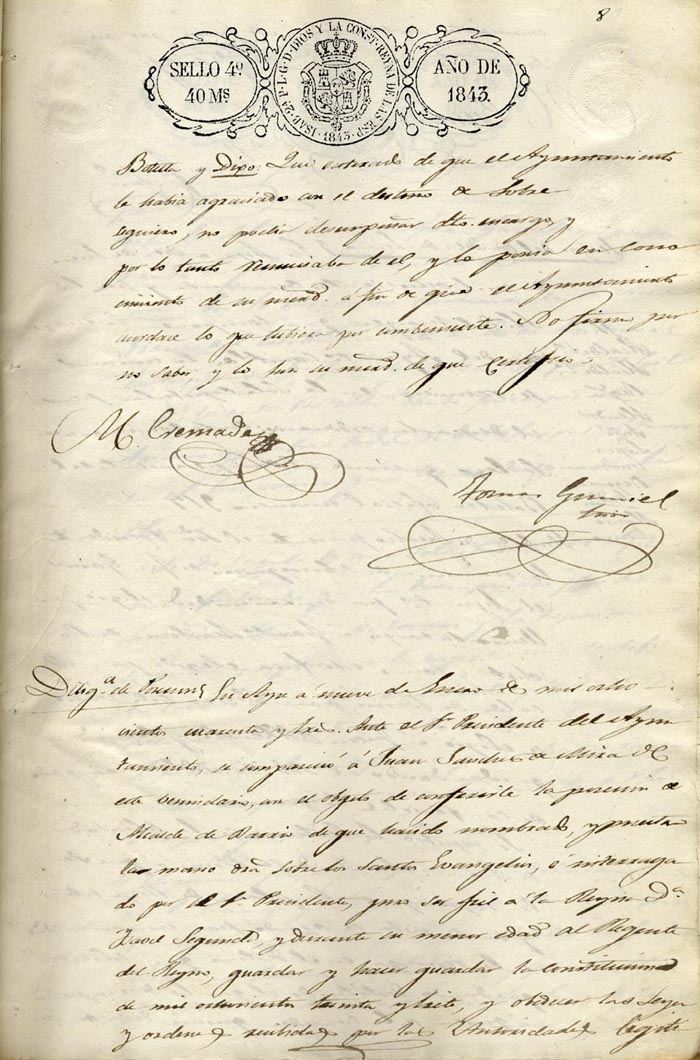 8
SELLO 4º
40 Mˢ
ISAB. 2ª P. L. G. D. DIOS Y LA CONST. REYNA DE LAS ESP. 1843.
AÑO DE
1843.
y Dijo: Que enterado de que el Ayuntamiento
le habia agraciado con el destino de Sobre
, no podia desempeñar dho. encargo, y
por lo tanto renunciaba de el, y lo ponia en cono
cimiento de su merd. á fin de que el Ayuntamiento
acordase lo que tubiera por combeniente. No firma por
no saber, y lo hace su merd. de que certifico
M. Cremades
Tomas
Diligª de En Aspe á nueve de Enero de mil ocho
cientos cuarenta y tres. Ante el Sr. Presidente del Ayun
tamiento, se comparecio á Juan Sanchez de Mira de
este vecindario, con el objeto de conferirle la posecion de
Alcalde de Barrio de que ha sido nombrado, y puesta
la mano dra. sobre los Santos Evangelios, é interroga
do por el Sr. Presidente, juro ser fiel á la Reyna Dª
Isavel Segunda, y durante su menor edad al Regente
del Reyno, guardar y hacer guardar la constitucion
de mil ochocientos treinta y siete, y obedecer las Leyes
y ordenes recibidas por las Autoridades legiti